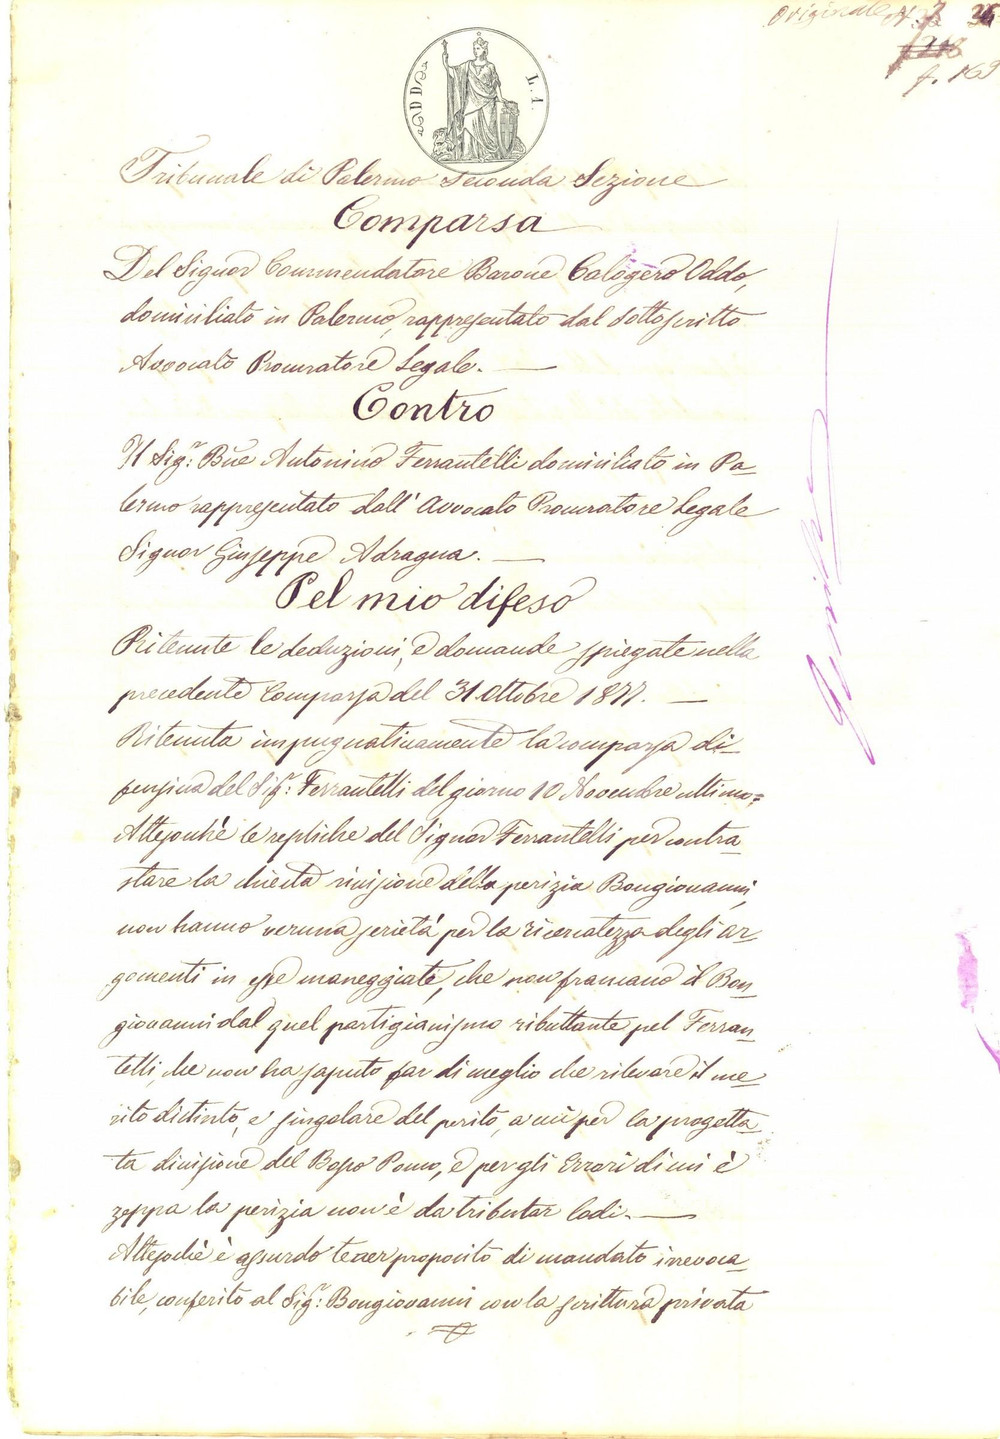 Originale N. 7 26
218
f. 169
L. 1.
Tribunale di Palermo Seconda Sezione
Comparsa
Del Signor Commendatore Barone Calogero Oddo,
domiciliato in Palermo, rappresentato dal sottoscritto
Avvocato Procuratore Legale.
Contro
Il Sig.r: Bne Antonino Ferrantelli domiciliato in Pa_
lermo rappresentato dall' Avvocato Procuratore Legale
Signor Giuseppe Adragna.
Pel mio difeso
Ritenute le deduzioni, e domande spiegate nella
precedente Comparsa del 31 Ottobre 1877.
Ritenuta impugnativamente la comparsa di_
fensiva del Sig.r: Ferrantelli del giorno 10 Novembre ultimo=
Attesochè le repliche del Signor Ferrantelli per contra_
stare la chiesta revisione della perizia Bongiovanni,
non hanno veruna serietà per la ricercatezza degli ar_
gomenti in esse maneggiate, che non francano il Bon_
giovanni dal quel partigianismo ributtante pel Ferran_
telli, che non ha saputo far di meglio che rilevare il me_
rito distinto, e singolare del perito, a cui per la progetta_
ta divisione del Bosso Pomo, e per gli Errori di cui è
zeppa la perizia non è da tributar lodi.
Attesochè è assurdo tener proposito di mandato irrevoca_
bile, conferito al Sig.r: Bongiovanni con la scrittura privata